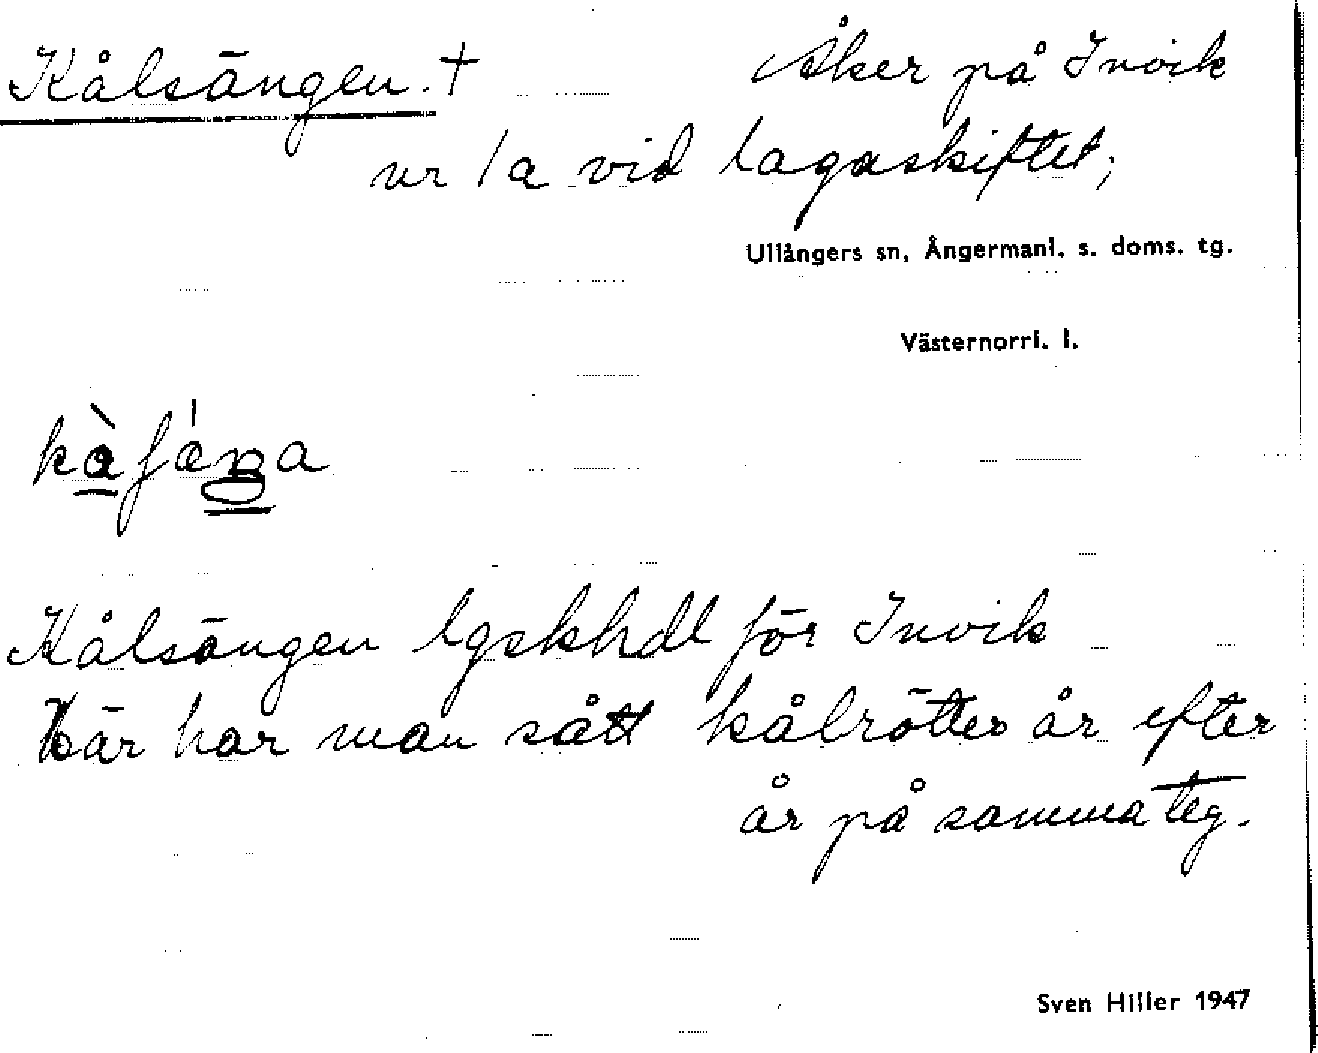 Kålsängen. † Åker på Invik
nr 1a vid lagaskiftet;
Ullångers sn, Ångermanl. s. doms. tg.
Västernorrl. l.
Kålsängen lgskhdl för Invik
här har man sått kålrötter år efter
år på samma teg.
Sven Hiller 1947